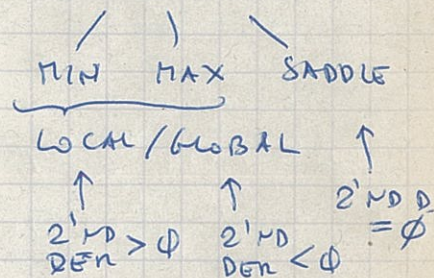 MIN MAX SADDLE
LOCAL/GLOBAL
2'ND DER > Φ
2'ND DER < Φ
2'ND D = Φ